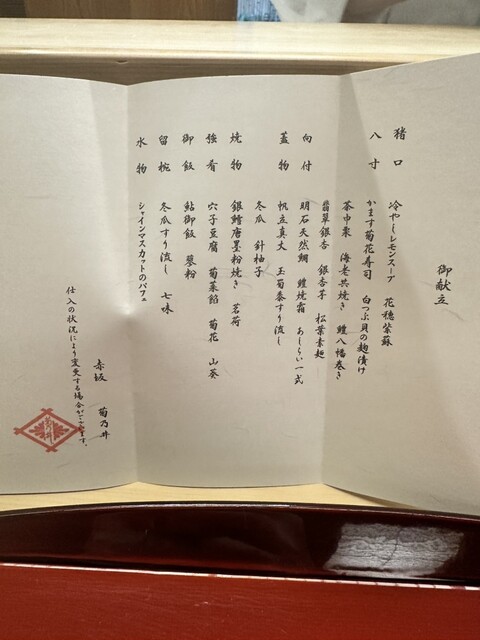 御献立
猪口 冷やしレモンスープ 花穂紫蘇
八寸 かます菊花寿司 白つぶ貝の麹漬け
茶巾栗 海老共焼き 鱧八幡巻き
翡翠銀杏 銀杏芋 松葉素麺
向付 明石天然鯛 鱧焼霜 あしらい一式
蓋物 帆立真丈 玉蜀黍すり流し
冬瓜 針柚子
焼物 銀鱈唐墨粉焼き 茗荷
強肴 穴子豆腐 菊菜餡 菊花 山葵
御飯 鮎御飯 蓼粉
留椀 冬瓜すり流し 七味
水物 シャインマスカットのパフェ
赤坂 菊乃井
仕入の状況により変更する場合がございます。